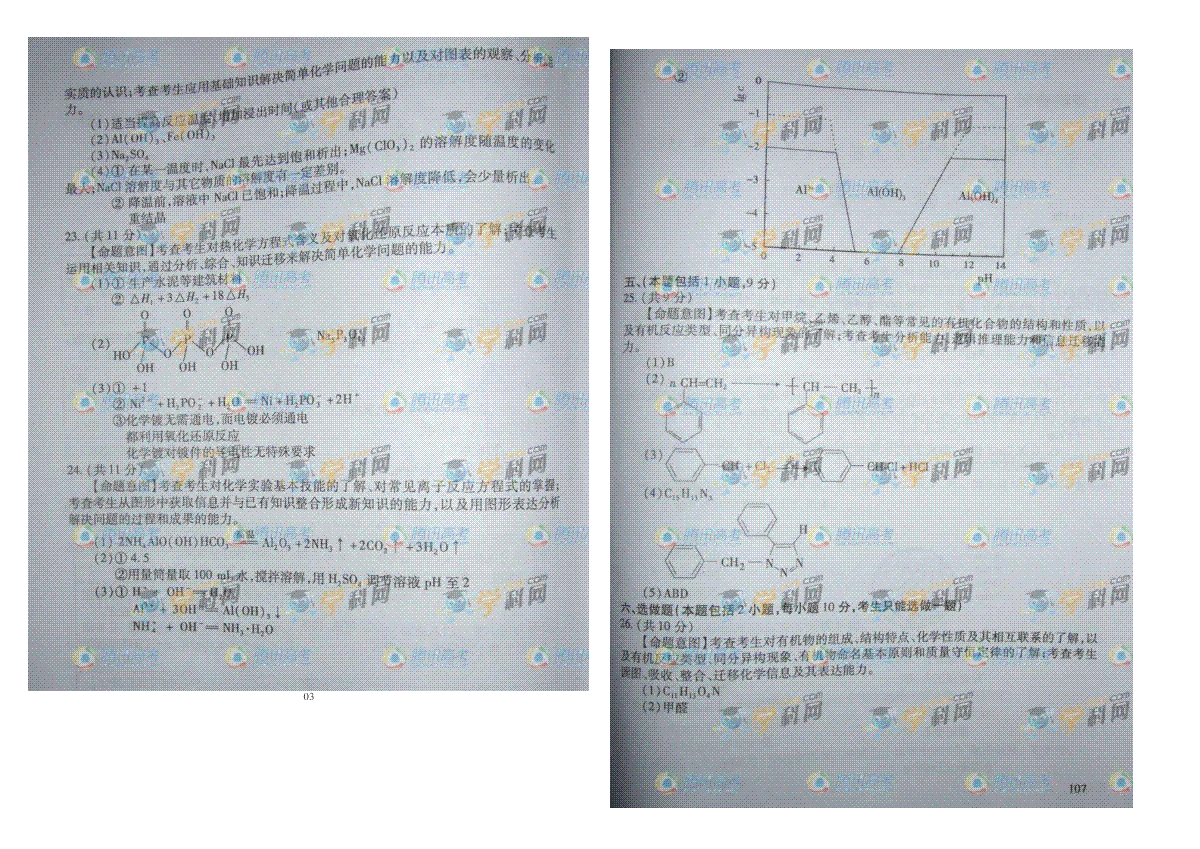 实质的认识;考查考生应用基础知识解决简单化学问题的能力以及对图表的观察、分析能
力。
(1)适当提高反应温度、增加浸出时间(或其他合理答案)
(2)Al(OH)₃、Fe(OH)₃
(3)Na₂SO₄
(4)① 在某一温度时,NaCl 最先达到饱和析出;Mg(ClO₃)₂ 的溶解度随温度的变化
最大;NaCl 溶解度与其它物质的溶解度有一定差别。
② 降温前,溶液中 NaCl 已饱和;降温过程中,NaCl 溶解度降低,会少量析出
重结晶
23.(共 11 分)
【命题意图】考查考生对热化学方程式含义及对氧化还原反应本质的了解;考查考生
运用相关知识,通过分析、综合、知识迁移来解决简单化学问题的能力。
(1)① 生产水泥等建筑材料
② △H₁+3△H₂+18△H₃
(2)
O O O
HO P O P O P OH
OH OH OH
(3)① +1
② Ni²⁺+H₂PO₂⁻+H₂O ═ Ni+H₂PO₃⁻+2H⁺
③化学镀无需通电,而电镀必须通电
都利用氧化还原反应
化学镀对镀件的导电性无特殊要求
24.(共 11 分)
【命题意图】考查考生对化学实验基本技能的了解、对常见离子反应方程式的掌握;
考查考生从图形中获取信息并与已有知识整合形成新知识的能力,以及用图形表达分析
解决问题的过程和成果的能力。
(1) 2NH₄AlO(OH)HCO₃ ═ 高温 Al₂O₃+2NH₃↑+2CO₂↑+3H₂O↑
(2)① 4.5
②用量筒量取 100 mL 水,搅拌溶解,用 H₂SO₄ 调节溶液 pH 至 2
(3)① H⁺ + OH⁻ ═ H₂O
Al³⁺ + 3OH⁻ ═ Al(OH)₃↓
NH₄⁺ + OH⁻ ═ NH₃·H₂O
03
②
lg c
0
-1
-2
-3
-4
-5
Al³⁺ Al(OH)₃ Al(OH)₄⁻
0 2 4 6 8 10 12 14
pH
五、(本题包括 1 小题,9 分)
25.(共 9 分)
【命题意图】考查考生对甲烷、乙烯、乙醇、酯等常见的有机化合物的结构和性质,以
及有机反应类型、同分异构现象的了解;考查考生分析能力、逻辑推理能力和信息迁移能
力。
(1)B
(2) n CH=CH₂ → [CH — CH₂]n
(3) CH₃ + Cl₂ → CH₂Cl + HCl
(4)C₁₅H₁₃N₃
H
CH₂ — N N N
(5)ABD
六、选做题(本题包括 2 小题,每小题 10 分,考生只能选做一题)
26.(共 10 分)
【命题意图】考查考生对有机物的组成、结构特点、化学性质及其相互联系的了解,以
及有机反应类型、同分异构现象、有机物命名基本原则和质量守恒定律的了解;考查考生
识图、吸收、整合、迁移化学信息及其表达能力。
(1)C₁₁H₁₅O₄N
(2)甲醛
107